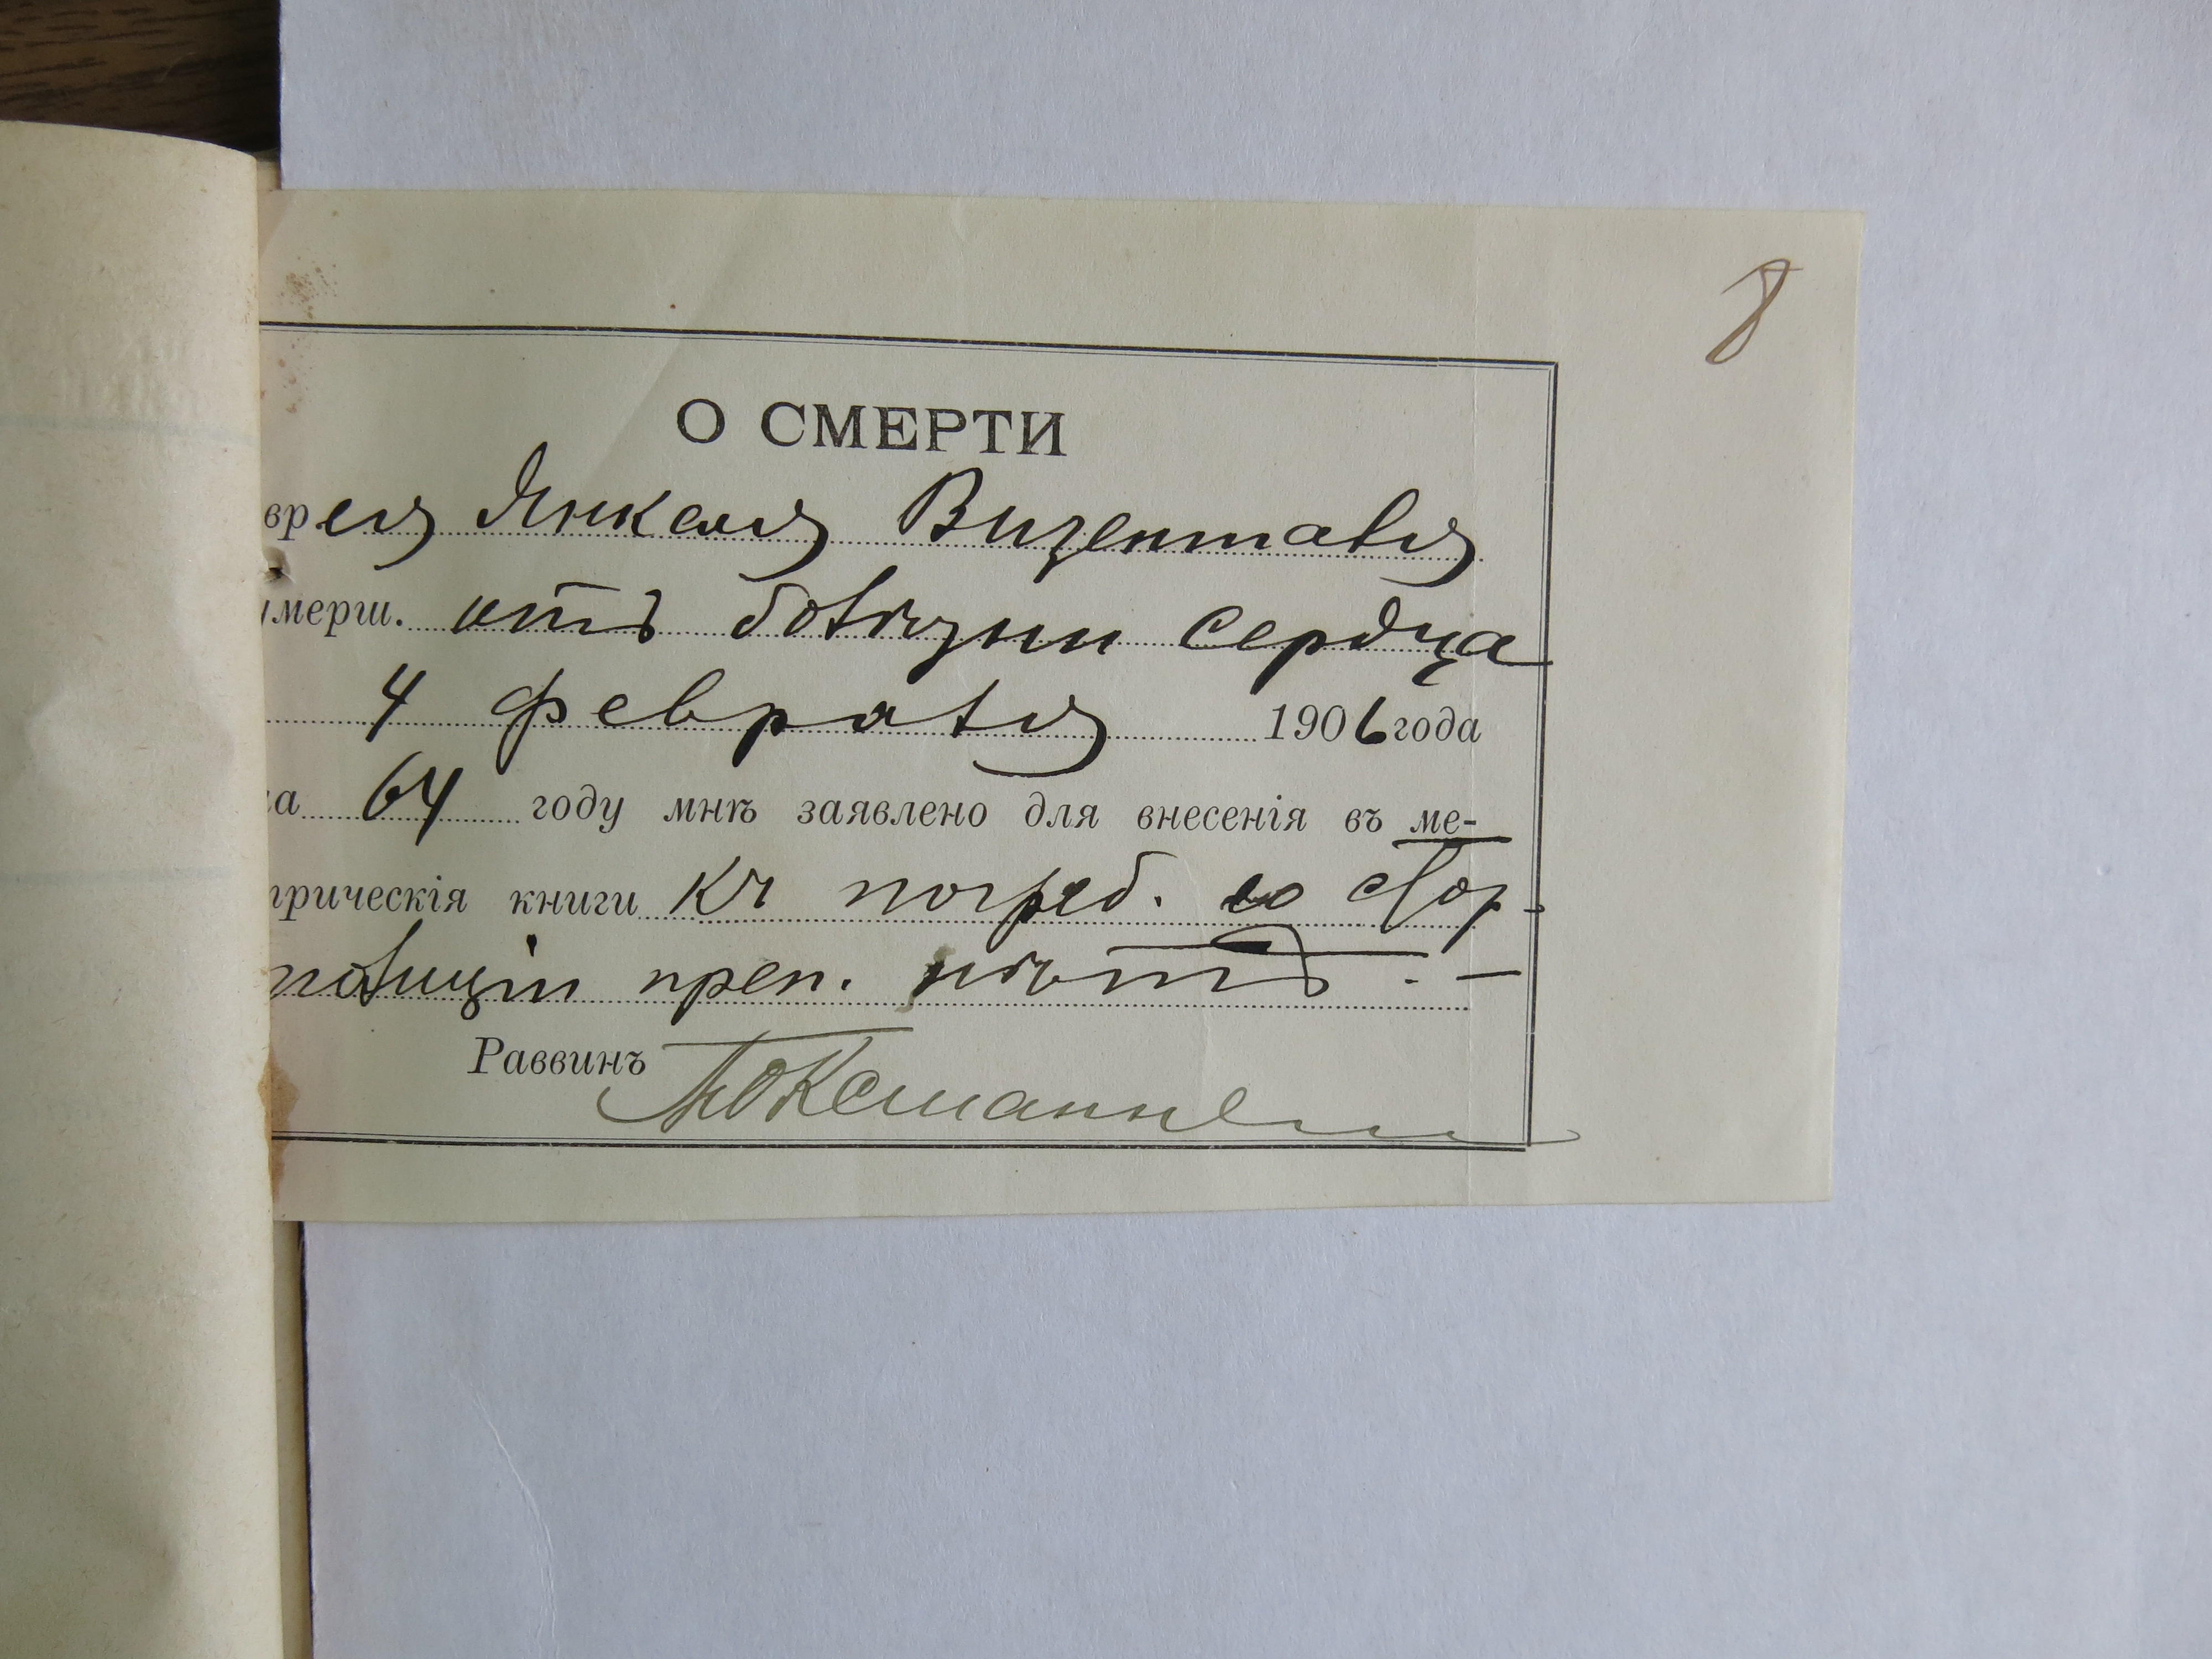 8
О СМЕРТИ
врея Янкеля Визенталя
умерш. отъ болѣзни сердца
4 февраля 1906 года
на 64 году мнѣ заявлено для внесенія въ ме-
трическія книги Къ погреб. со стор.
полиціи преп. нѣтъ. —
Раввинъ